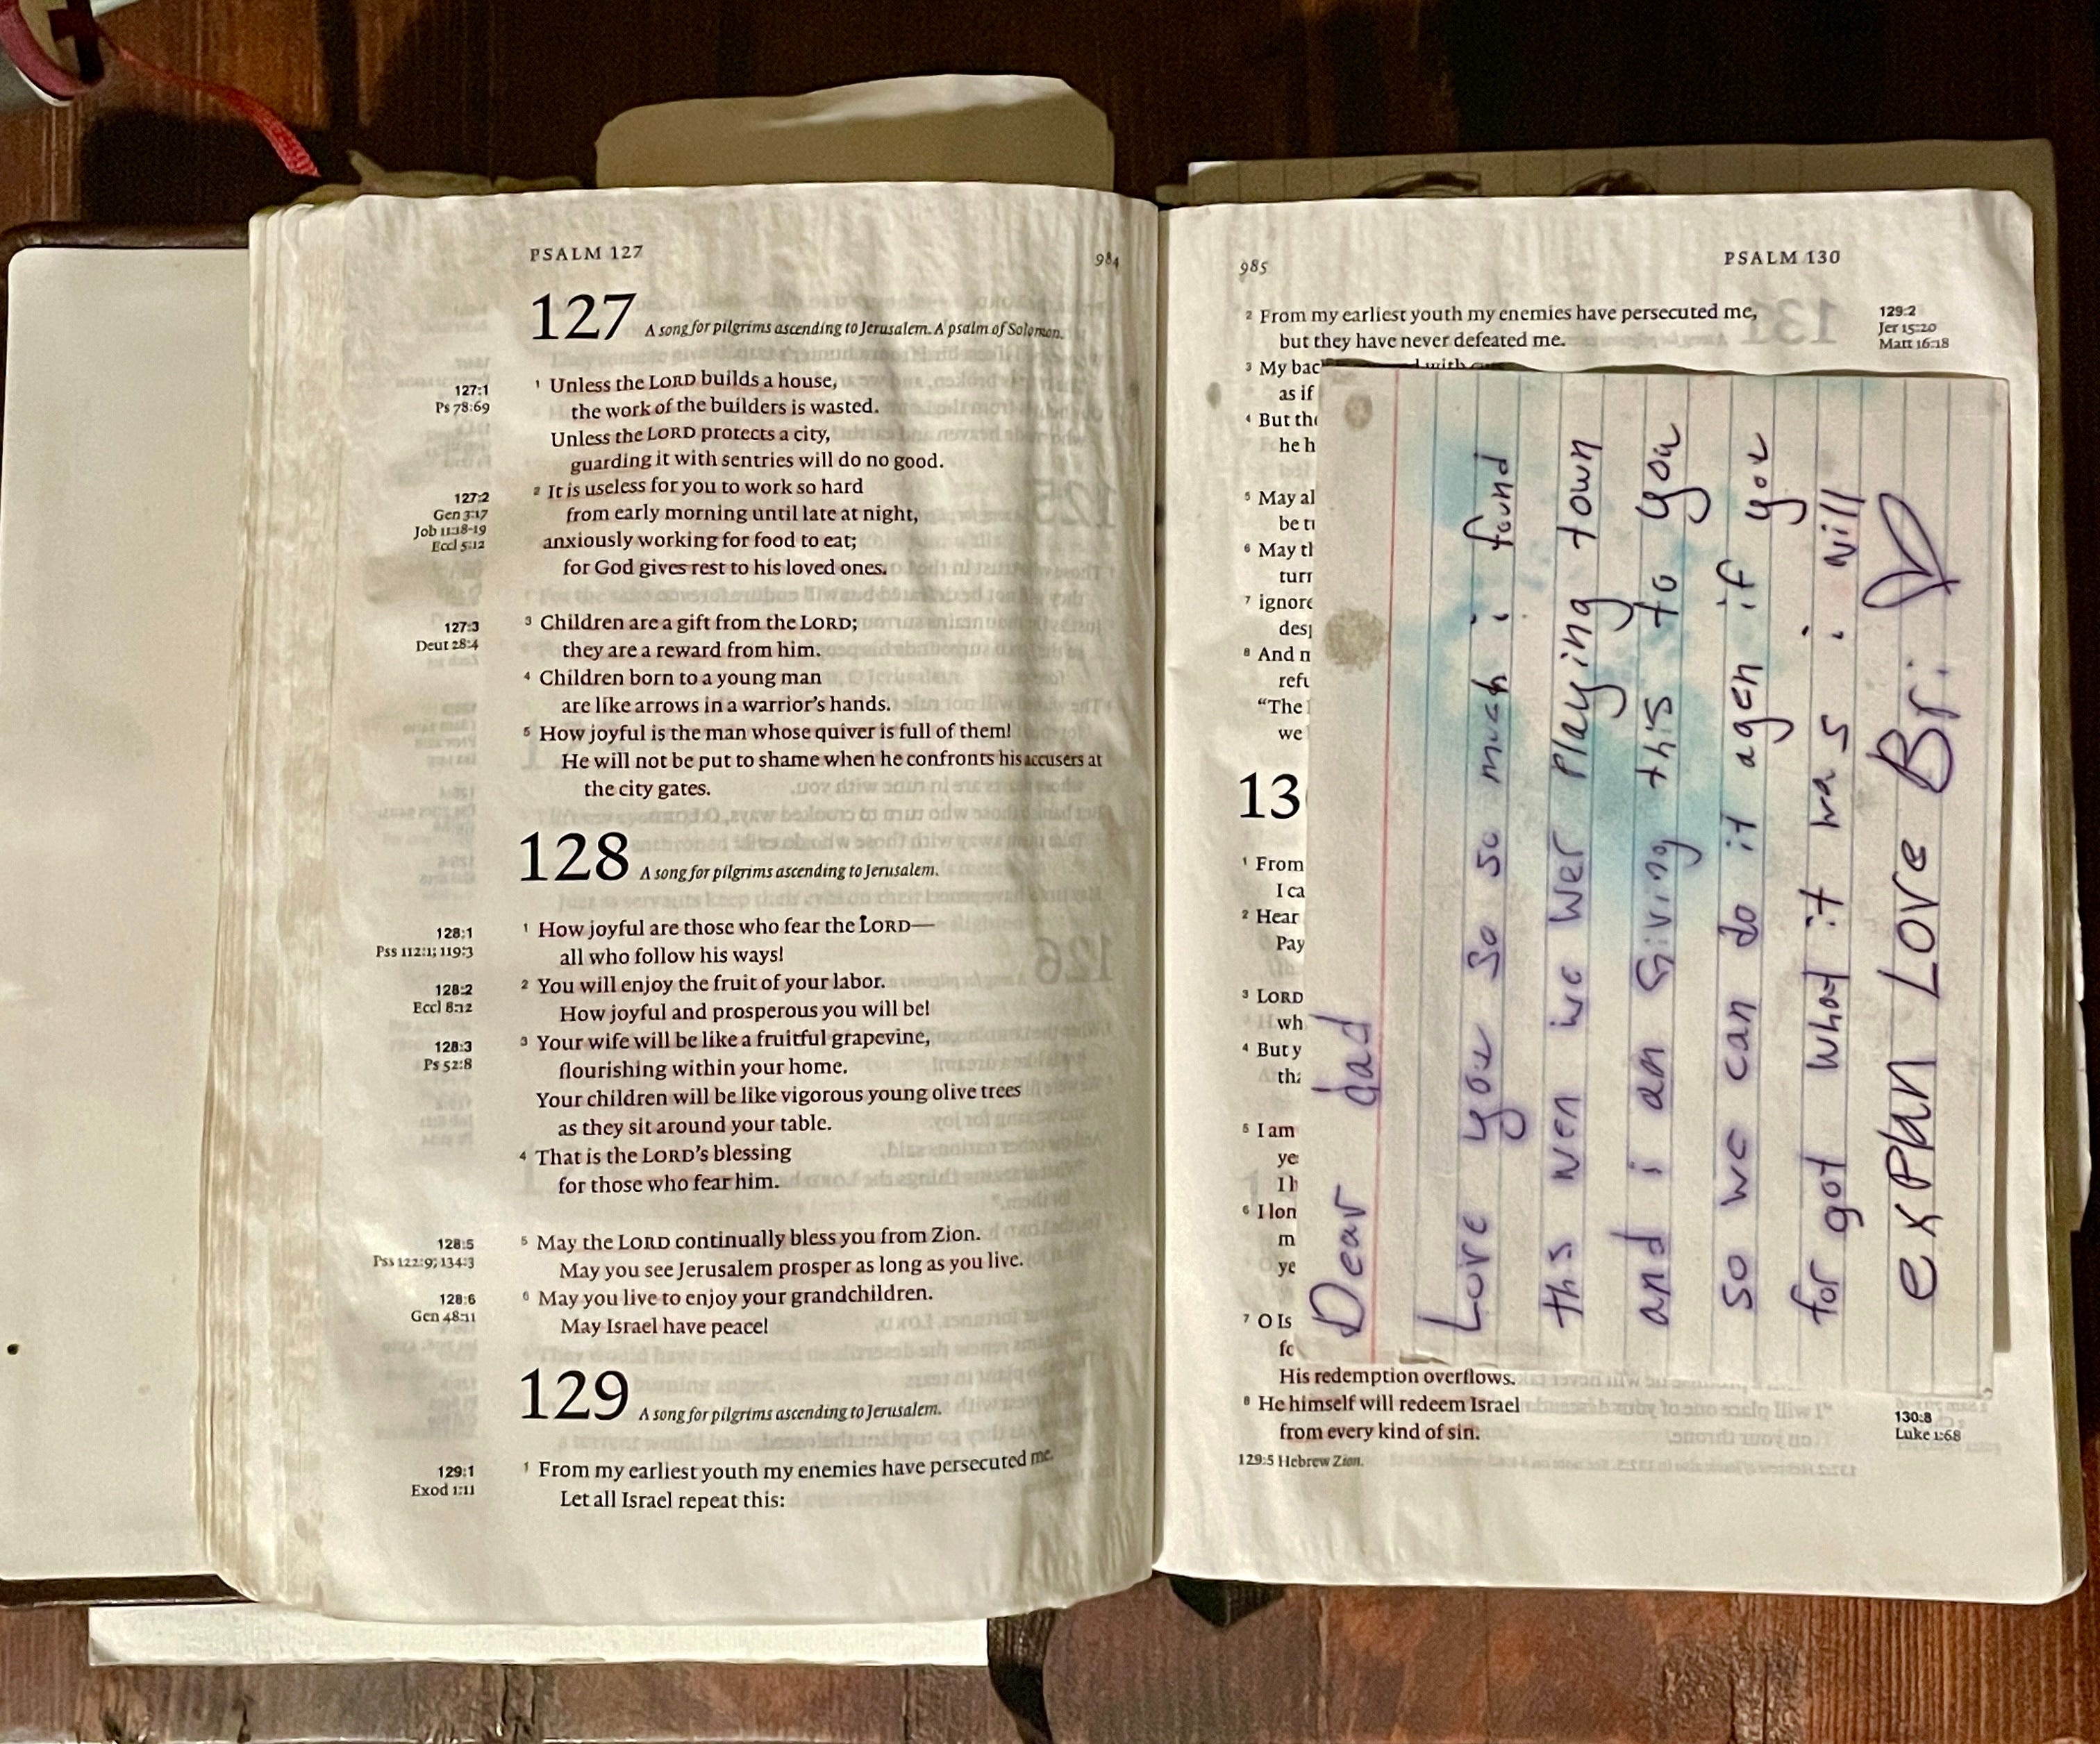 PSALM 127
984
127 A song for pilgrims ascending to Jerusalem. A psalm of Solomon.
127:1
Ps 78:69
1 Unless the LORD builds a house,
the work of the builders is wasted.
Unless the LORD protects a city,
guarding it with sentries will do no good.
127:2
Gen 3:17
Job 11:18-19
Eccl 5:12
2 It is useless for you to work so hard
from early morning until late at night,
anxiously working for food to eat;
for God gives rest to his loved ones.
127:3
Deut 28:4
3 Children are a gift from the LORD;
they are a reward from him.
4 Children born to a young man
are like arrows in a warrior's hands.
5 How joyful is the man whose quiver is full of them!
He will not be put to shame when he confronts his accusers at
the city gates.
128 A song for pilgrims ascending to Jerusalem.
128:1
Pss 112:1; 119:3
1 How joyful are those who fear the LORD—
all who follow his ways!
128:2
Eccl 8:12
2 You will enjoy the fruit of your labor.
How joyful and prosperous you will be!
128:3
Ps 52:8
3 Your wife will be like a fruitful grapevine,
flourishing within your home.
Your children will be like vigorous young olive trees
as they sit around your table.
4 That is the LORD's blessing
for those who fear him.
128:5
Pss 122:9; 134:3
5 May the LORD continually bless you from Zion.
May you see Jerusalem prosper as long as you live.
128:6
Gen 48:11
6 May you live to enjoy your grandchildren.
May Israel have peace!
129 A song for pilgrims ascending to Jerusalem.
129:1
Exod 1:11
1 From my earliest youth my enemies have persecuted me.
Let all Israel repeat this:
985
PSALM 130
2 From my earliest youth my enemies have persecuted me,
but they have never defeated me.
129:2
Jer 15:20
Matt 16:18
3 My bac
as if
4 But the
he h
5 May al
be tu
6 May th
turn
7 ignore
desp
8 And n
refu
"The
we
13
1 From
I ca
2 Hear
Pay
3 LORD
wh
4 But y
tha
5 I am
ye
I h
6 I lon
m
ye
7 O Is
fo
His redemption overflows.
8 He himself will redeem Israel
from every kind of sin.
130:8
Luke 1:68
129:5 Hebrew Zion.
Dear dad
Love you so so much i found
ths wen we wer playing town
and i am Giving this to you
so we can do it agen if you
for got what it was i will
explan Love Bri